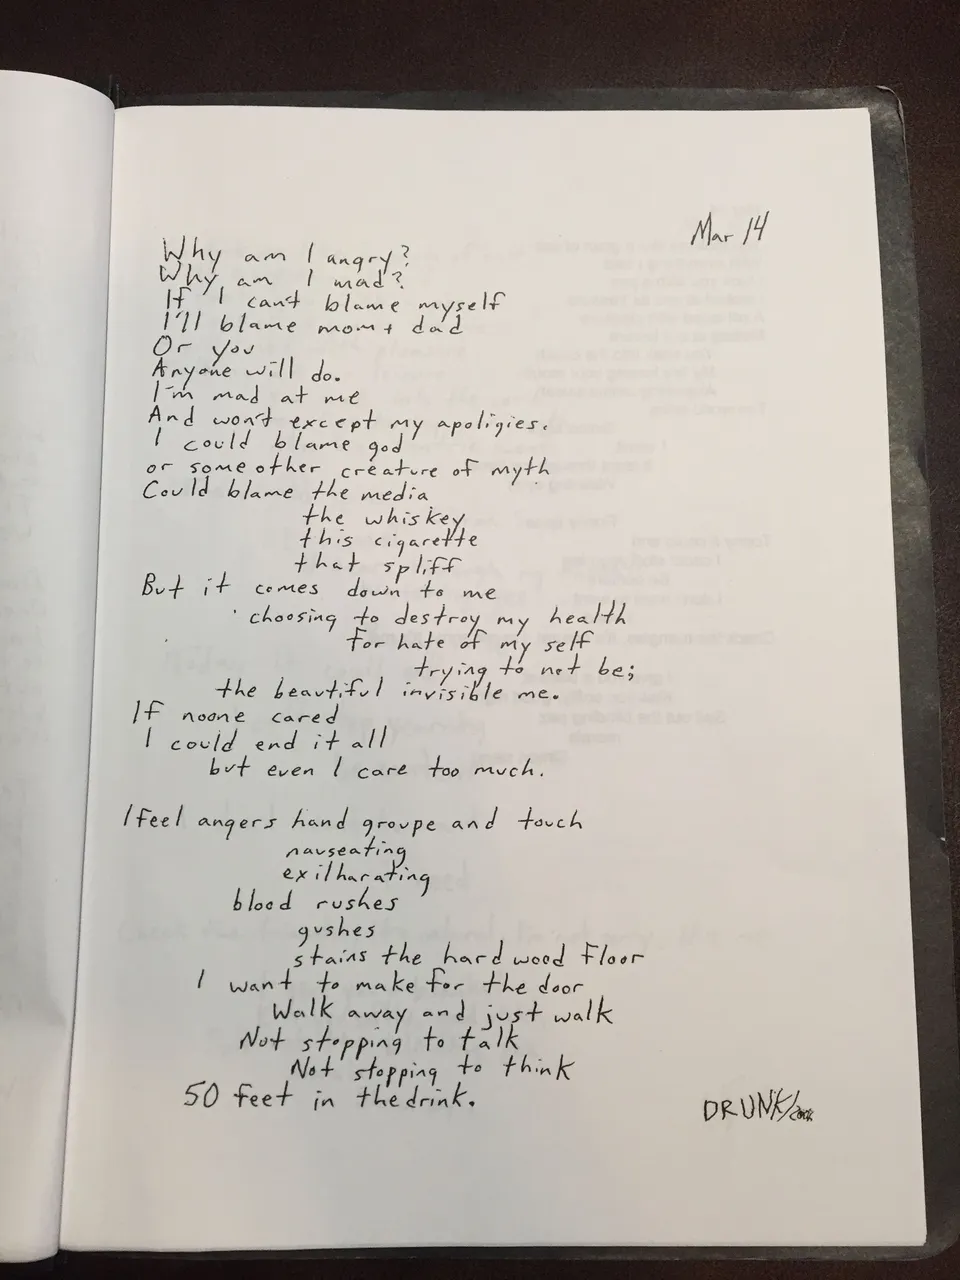 Mar 14
Why am I angry?
Why am I mad?
If I can't blame myself
I'll blame mom + dad
Or you
Anyone will do.
I'm mad at me
And won't except my apoligies.
I could blame god
or some other creature of myth
Could blame the media
the whiskey
this cigarette
that spliff
But it comes down to me
choosing to destroy my health
for hate of my self
trying to not be;
the beautiful invisible me.
If noone cared
I could end it all
but even I care too much.
I feel angers hand groupe and touch
nauseating
exilharating
blood rushes
gushes
stains the hard wood floor
I want to make for the door
Walk away and just walk
Not stopping to talk
Not stopping to think
50 feet in the drink.
DRUNK/